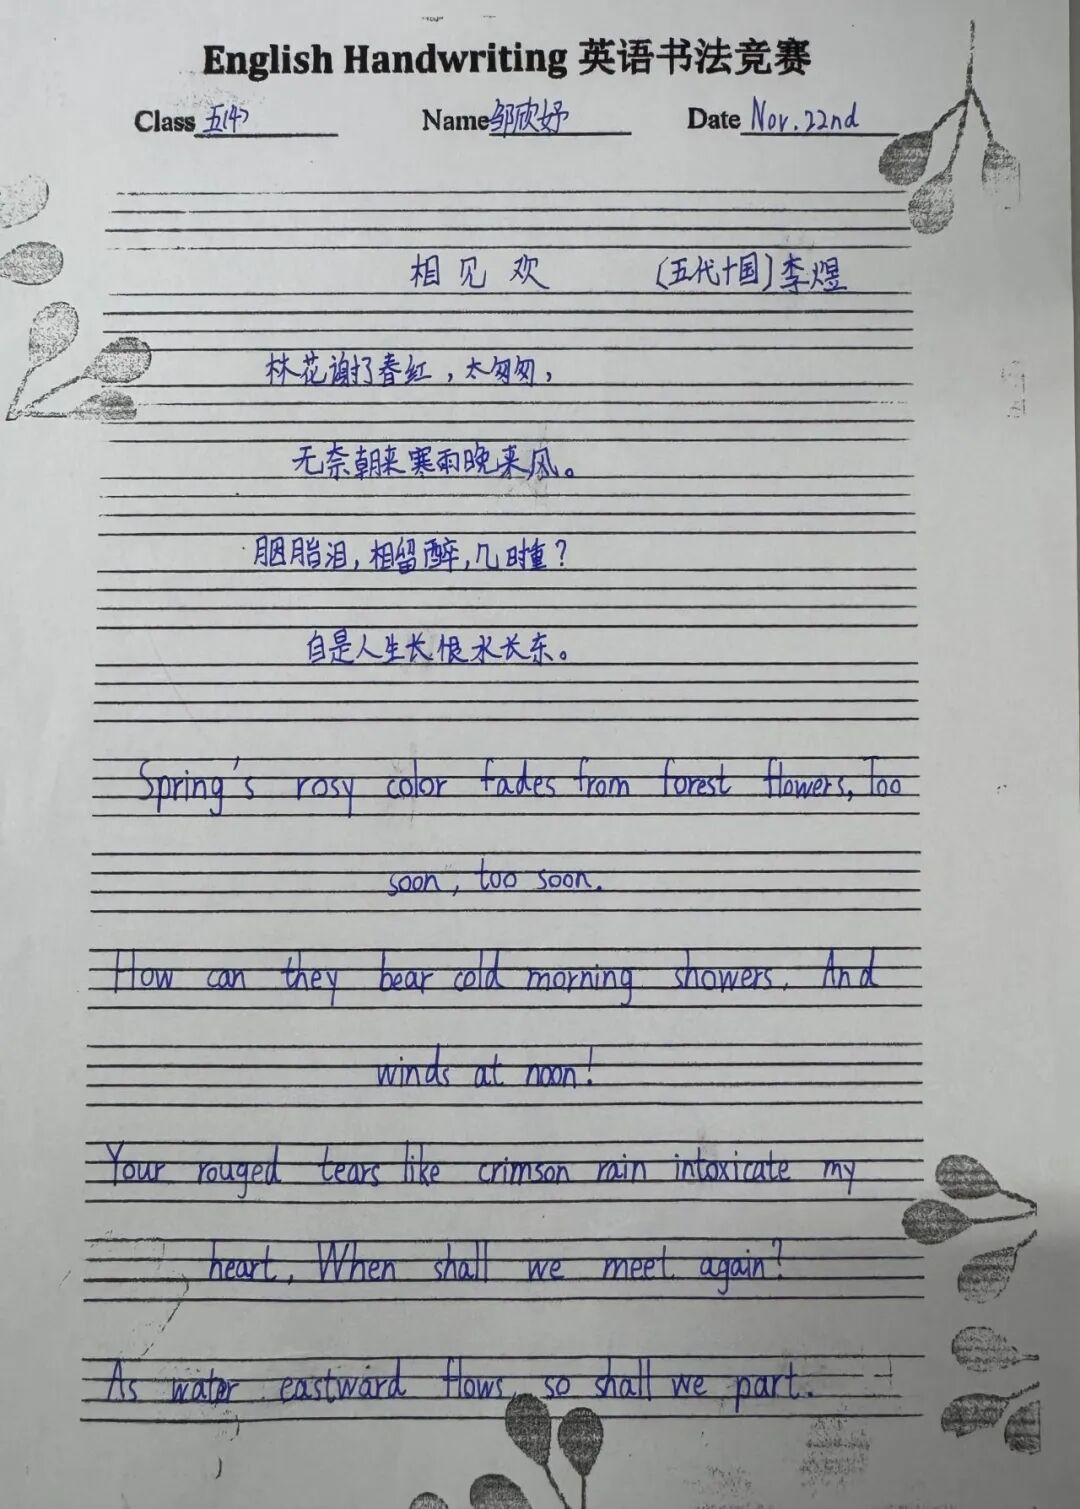 English Handwriting 英语书法竞赛
Class 五(4) Name 邹欣妤 Date Nov. 22nd
相见欢 [五代十国] 李煜
林花谢了春红，太匆匆，
无奈朝来寒雨晚来风。
胭脂泪，相留醉，几时重？
自是人生长恨水长东。
Spring's rosy color fades from forest flowers, Too
soon, too soon.
How can they bear cold morning showers. And
winds at noon!
Your rouged tears like crimson rain intoxicate my
heart, When shall we meet again?
As water eastward flows, so shall we part.